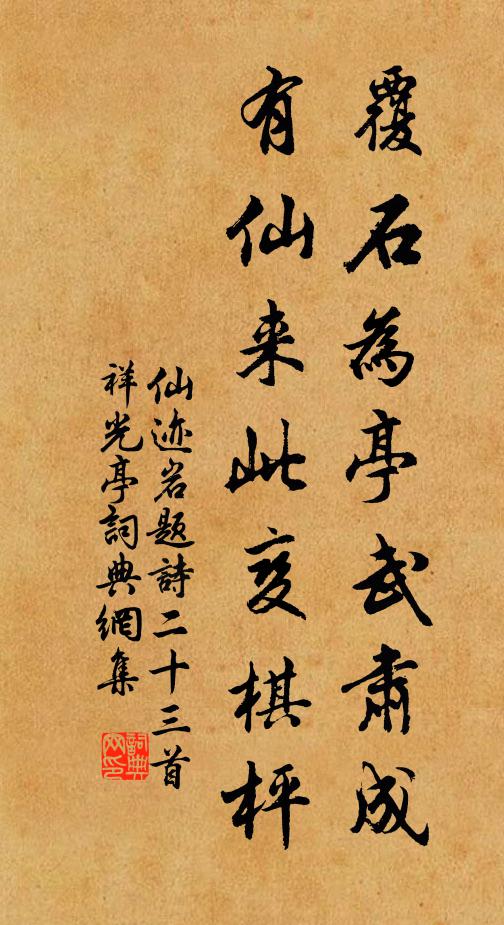 覆石為亭武肅成
有仙来此变棋枰
仙迹岩题詩二十三首
祥光亭詞典網集
詞典网印